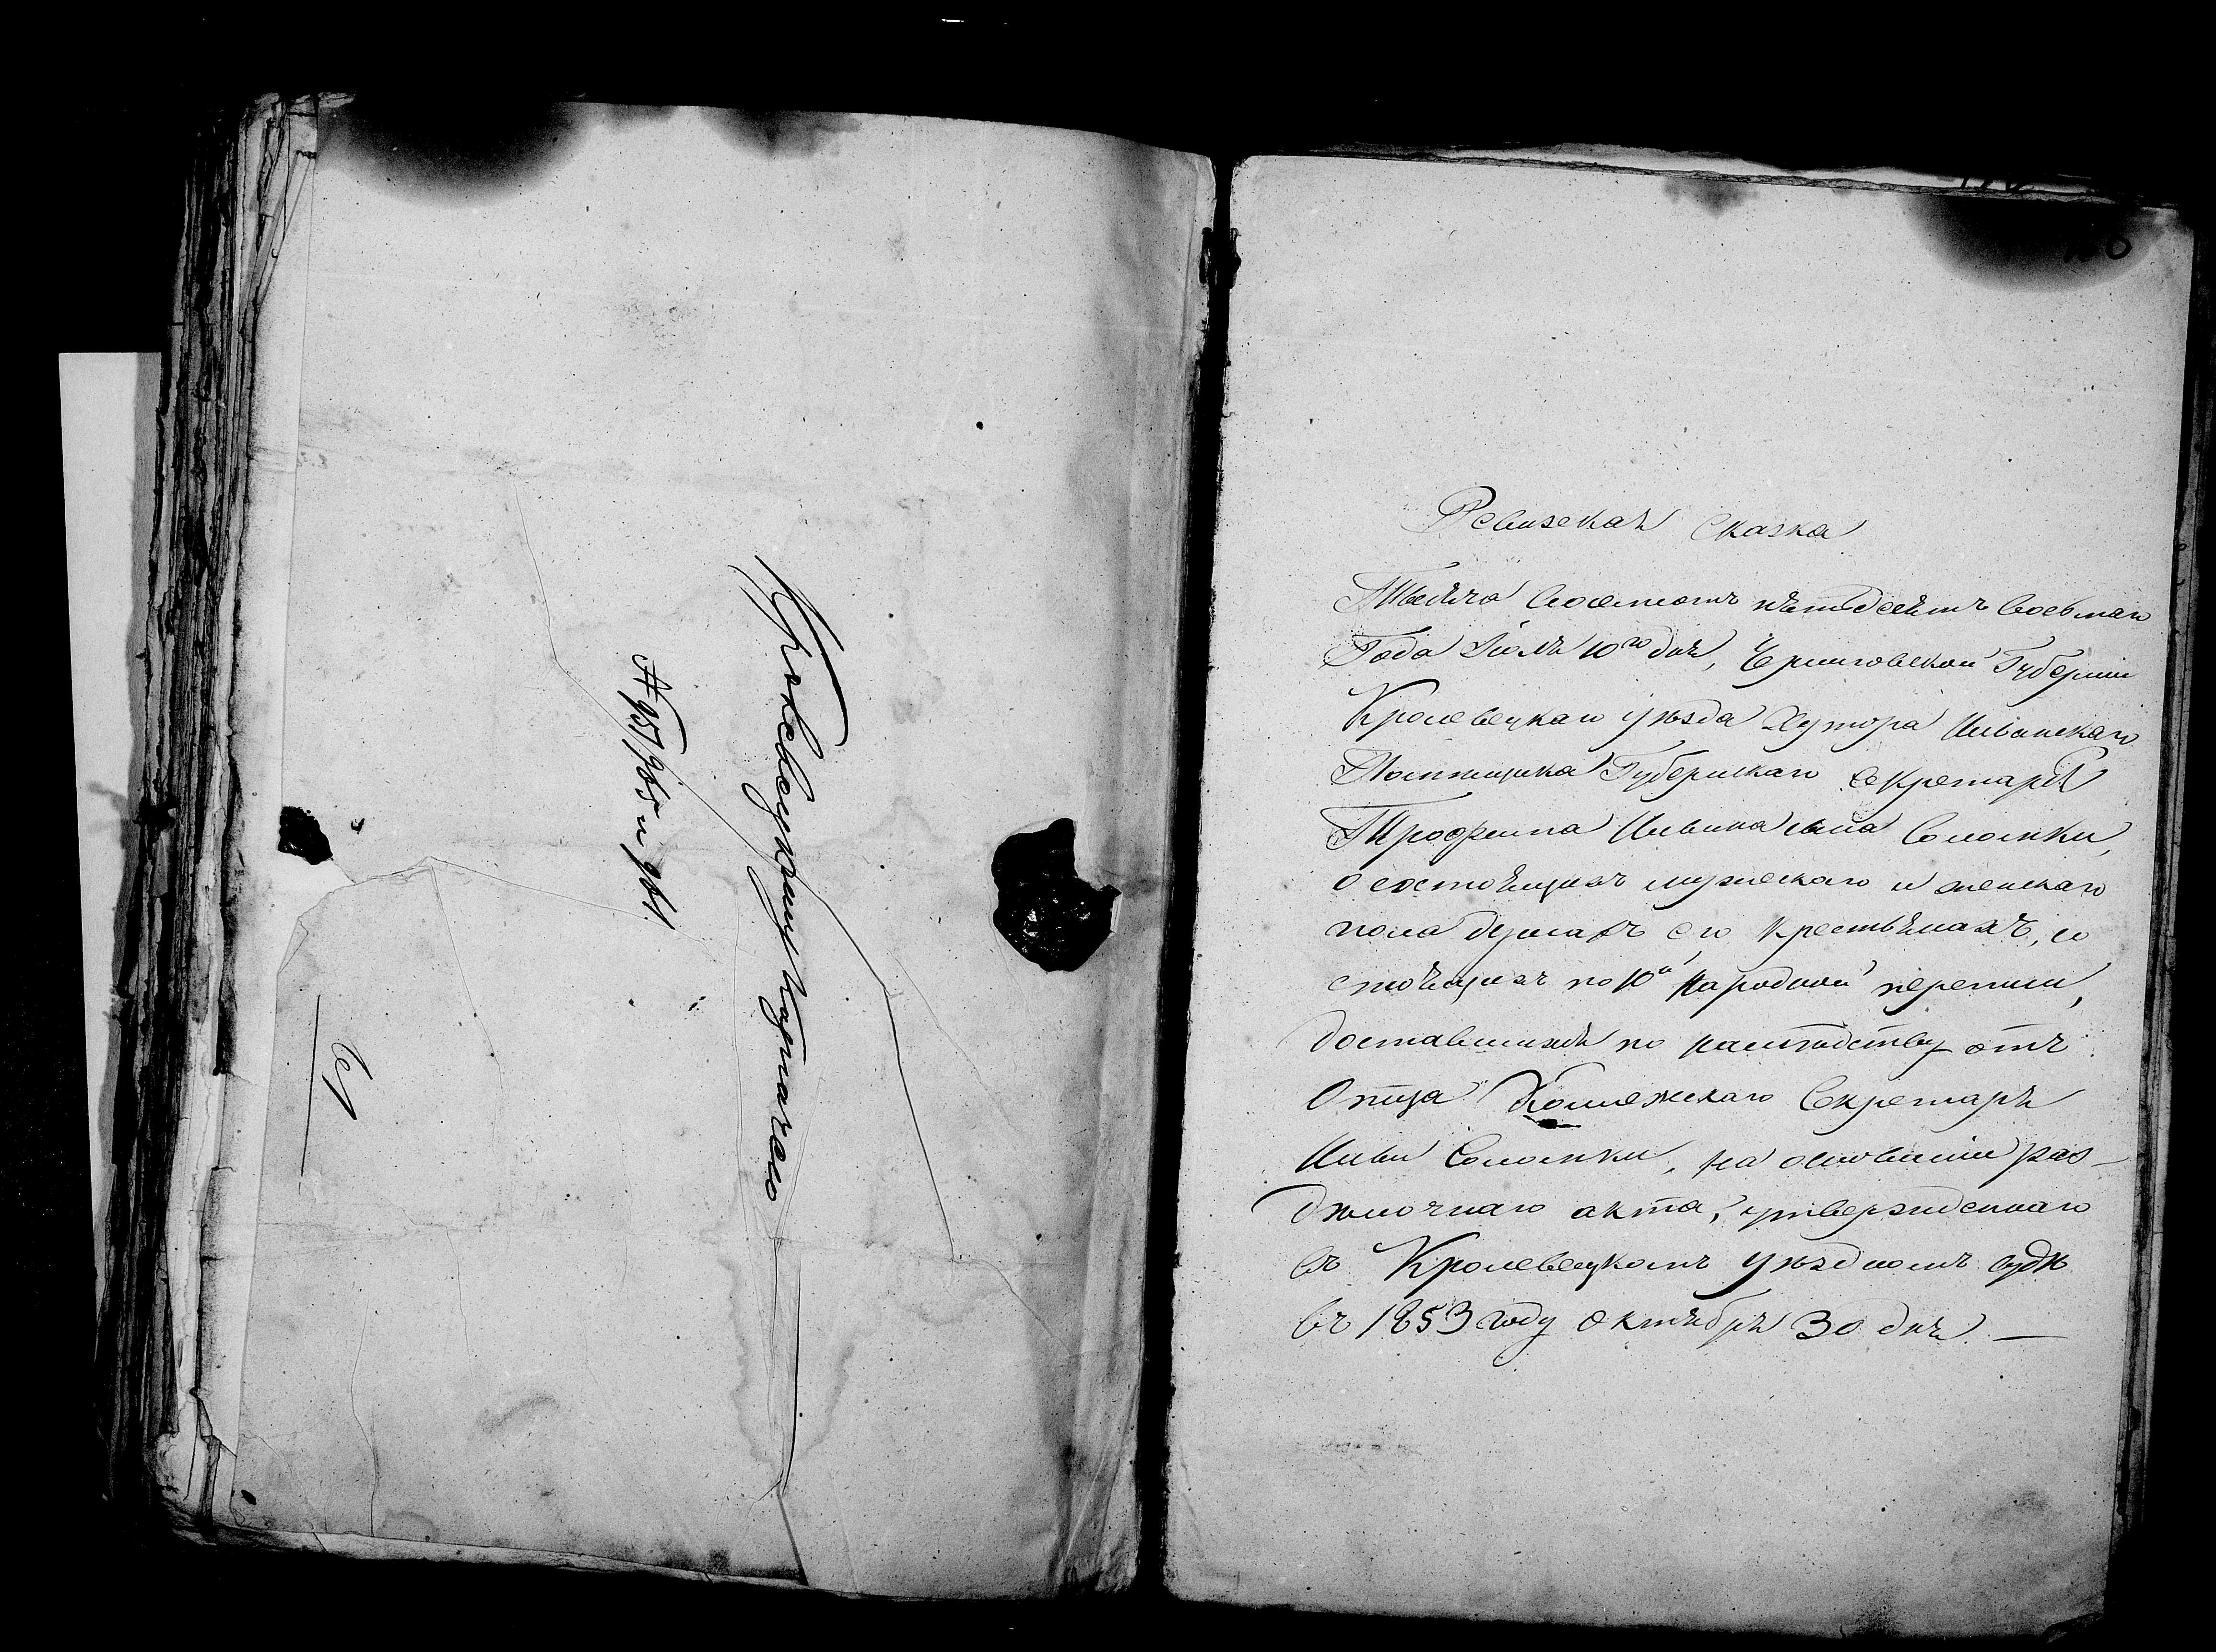 Кролевецкому Казначею
№ 957/965 и 961
Ревизская Сказка
Тысяча восемсотъ пятдесятъ восьмаго
Года Іюля 10го дня, Черниговской Губерніи
Кролевецкаго уѣзда Хутора
Помѣщика Губернскаго Секретаря
Трофима сына Соломки,
о состоящихъ мужескаго и женскаго
пола душахъ его Крестьянахъ, со
стоящихъ по 10й народной переписи,
доставшихся по наслѣдству отъ
Отца Колежскаго Секретаря
Соломки, на основаніи раз-
дѣлочнаго акта, утвержденнаго
въ Кролевецкомъ уѣздномъ судѣ
въ 1853 году Октября 30 дня. —